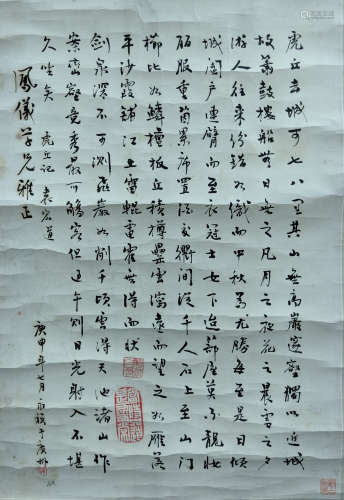 虎丘去城可七八里其山無高巖邃壑獨以近城
故簫鼓樓船無日無之凡月之夜花之晨雪之夕
游人往來紛錯如織而中秋為尤勝每至是日傾
城闔户連臂而至衣冠士女下迨蔀屋莫不靚妝
麗服重茵累席置酒交衢間從千人石上至山門
櫛比如鱗檀板丘積樽罍雲瀉遠而望之如雁落
平沙霞鋪江上雷輥電霍無得而狀
劍泉深不可測飛巖如削千頃雲得天池諸山作
案巒壑竟秀最可觴客但過午則日光射人不堪
久坐矣 虎丘記 袁宏道
鳳儀学兄雅正
庚申年七月